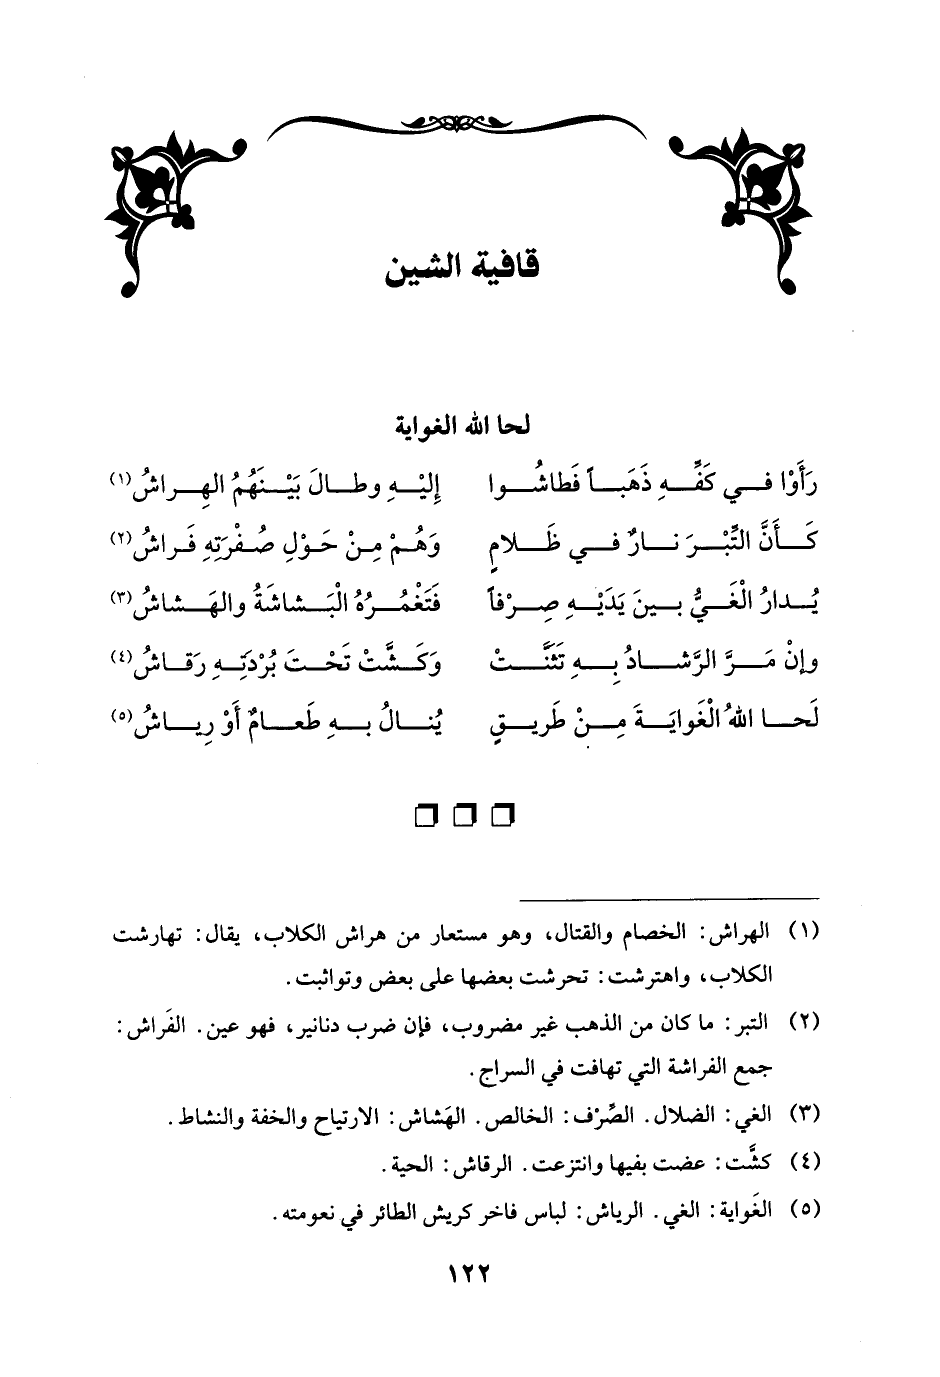 قافية الشين
لحا الله الغواية
رَأَوْا في كَفِّهِ ذَهَباً فَطاشُوا إِليْهِ وطالَ بَيْنَهُمُ الهِراشُ(١)
كَأَنَّ التِّبْرَ نارٌ في ظَلامٍ وَهُمْ مِنْ حَوْلِ صُفْرَتِهِ فَراشُ(٢)
يُدارُ الْغَيُّ بينَ يَدَيْهِ صِرْفاً فَتَغْمُرُهُ الْبَشاشَةُ والهَشاشُ(٣)
وإنْ مَرَّ الرَّشادُ بِهِ تَثَنَّتْ وَكَشَّتْ تَحْتَ بُرْدَتِهِ رَقاشُ(٤)
لَحا اللهُ الْغَوايَةَ مِنْ طَريقٍ يُنالُ بهِ طَعامٌ أَوْ رِياشُ(٥)
(١) الهراش: الخصام والقتال، وهو مستعار من هراش الكلاب، يقال: تهارشت
الكلاب، واهترشت: تحرشت بعضها على بعض وتواثبت.
(٢) التبر: ما كان من الذهب غير مضروب، فإن ضرب دنانير، فهو عين. الفَراش:
جمع الفراشة التي تهافت في السراج.
(٣) الغي: الضلال. الصِّرْف: الخالص. الهَشاش: الارتياح والخفة والنشاط.
(٤) كشَّت: عضت بفيها وانتزعت. الرقاش: الحية.
(٥) الغَواية: الغي. الرياش: لباس فاخر كريش الطائر في نعومته.
١٢٢